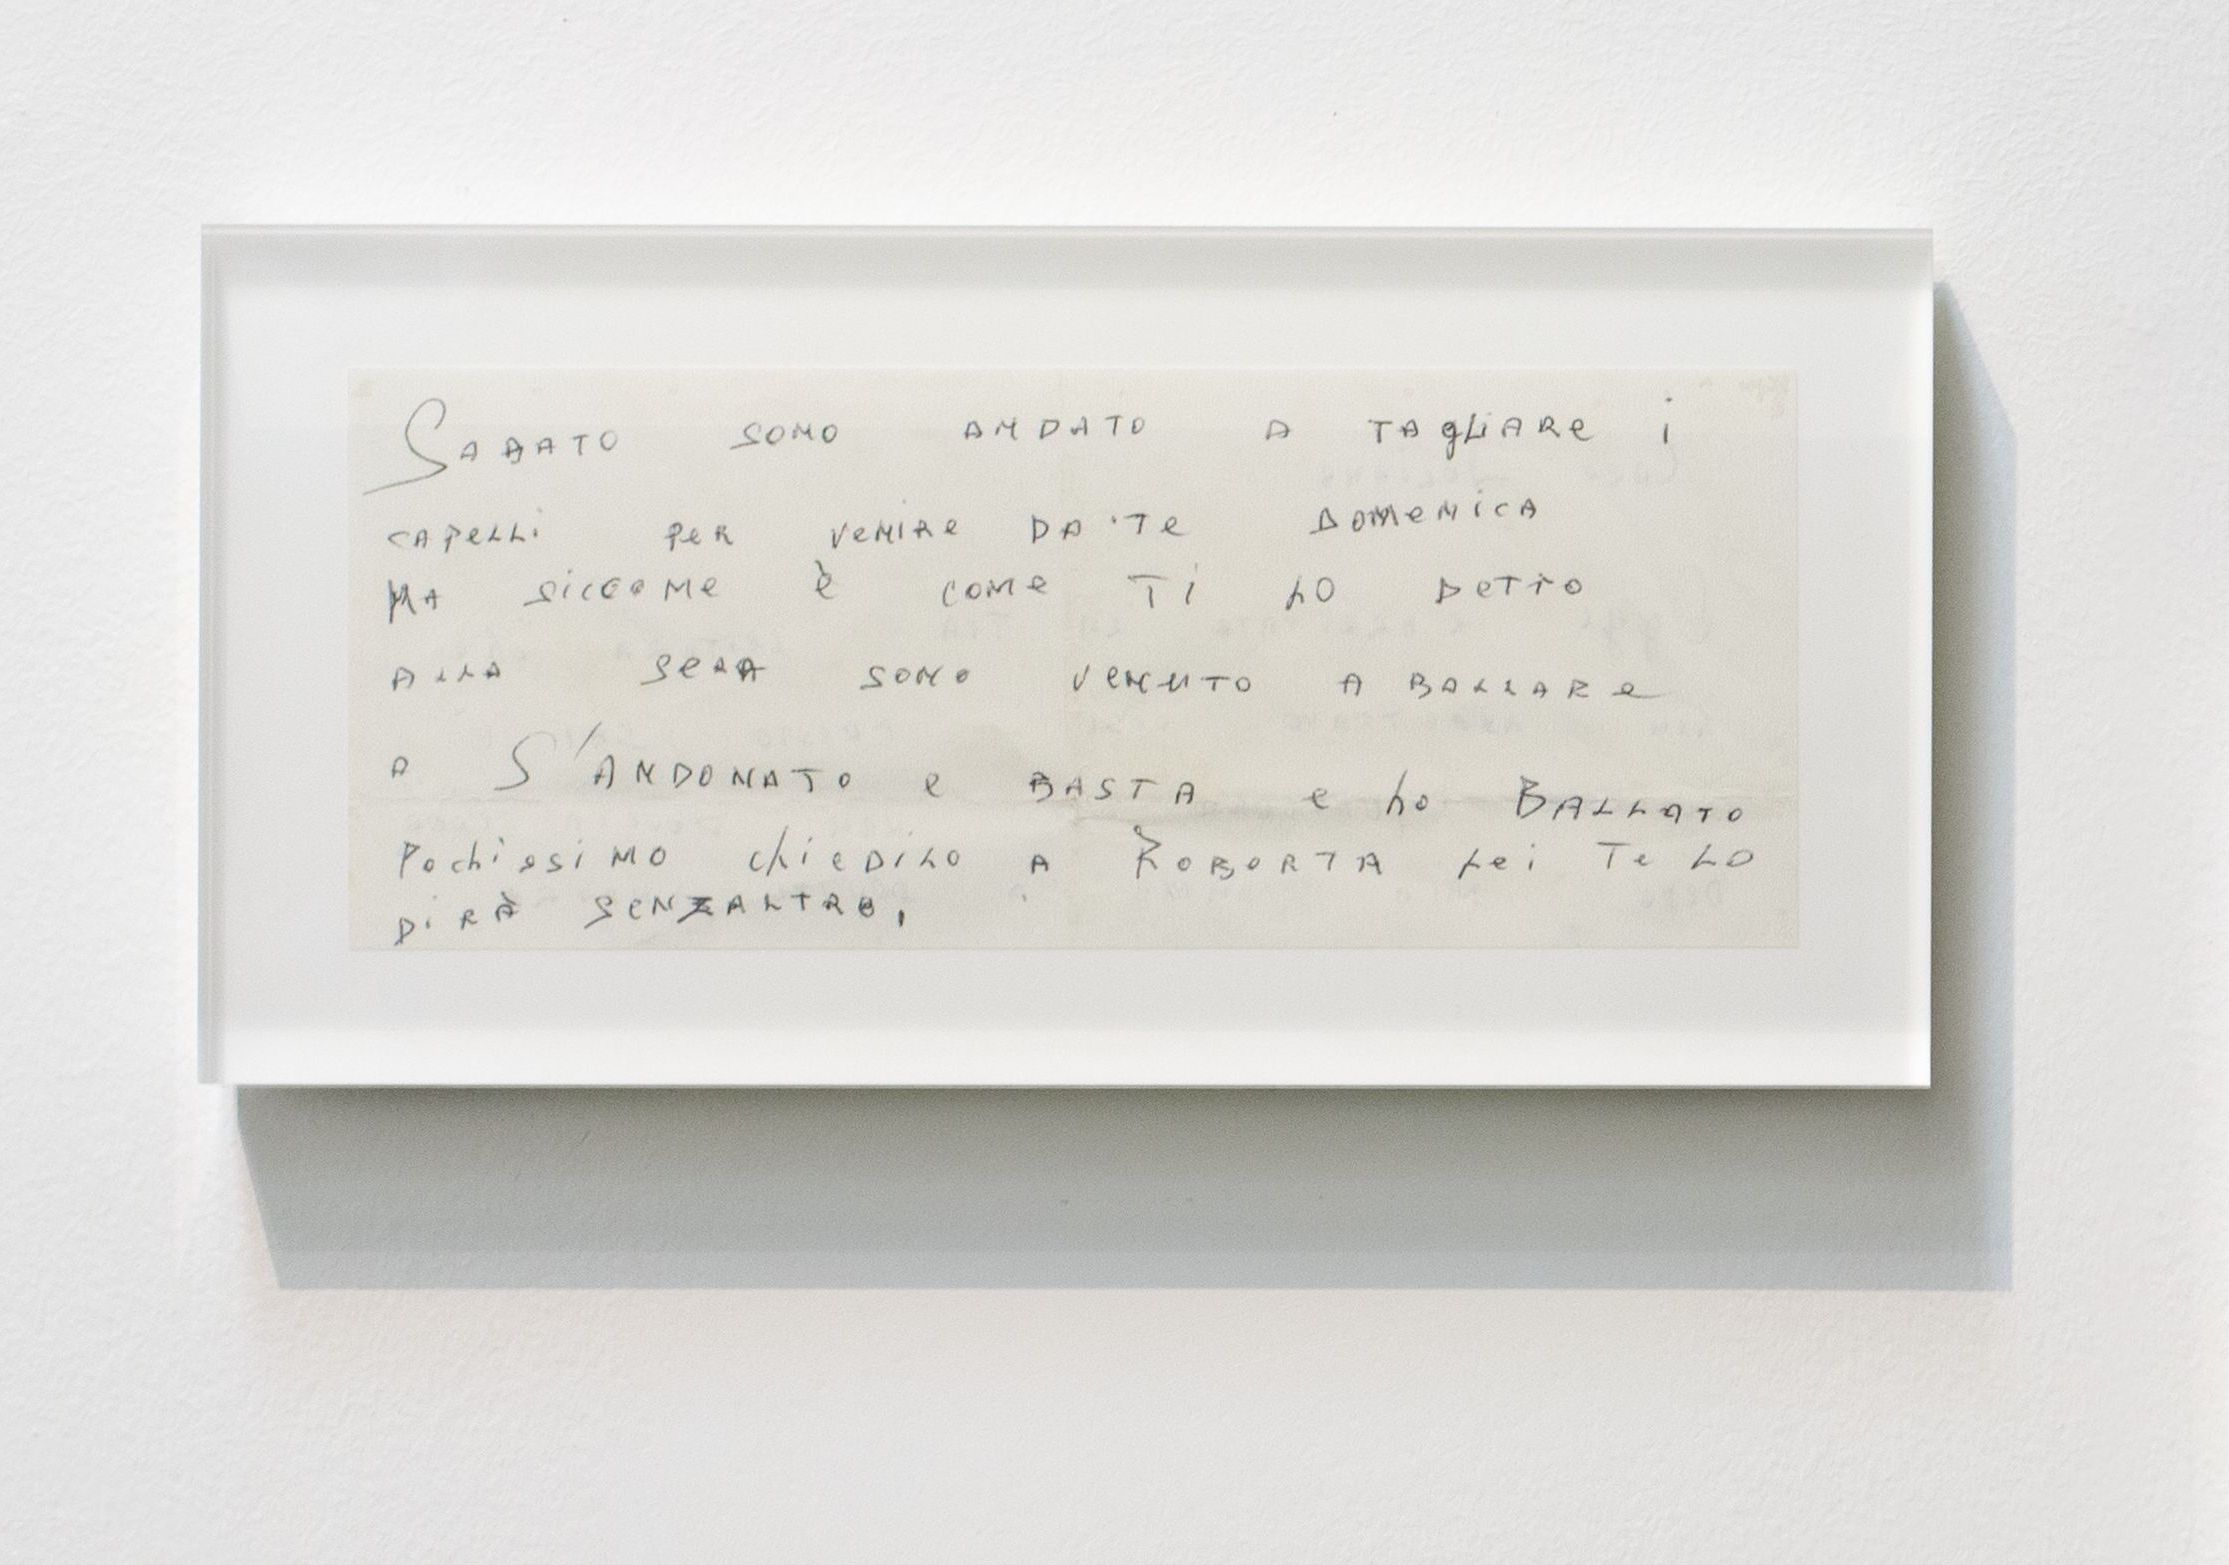 SABATO SONO ANDATO A TAGLIARE i
CAPELLi PER VENIRE DA TE DOMENICA
MA SICCOME è COME Ti HO DETTO
ALLA SERA SONO VENUTO A BALLARE
A S'ANDONATO e BASTA e ho BALLATO
Pochissimo chiediLO A ROBERTA Lei Te LO
DiRÀ SENZALTRO.